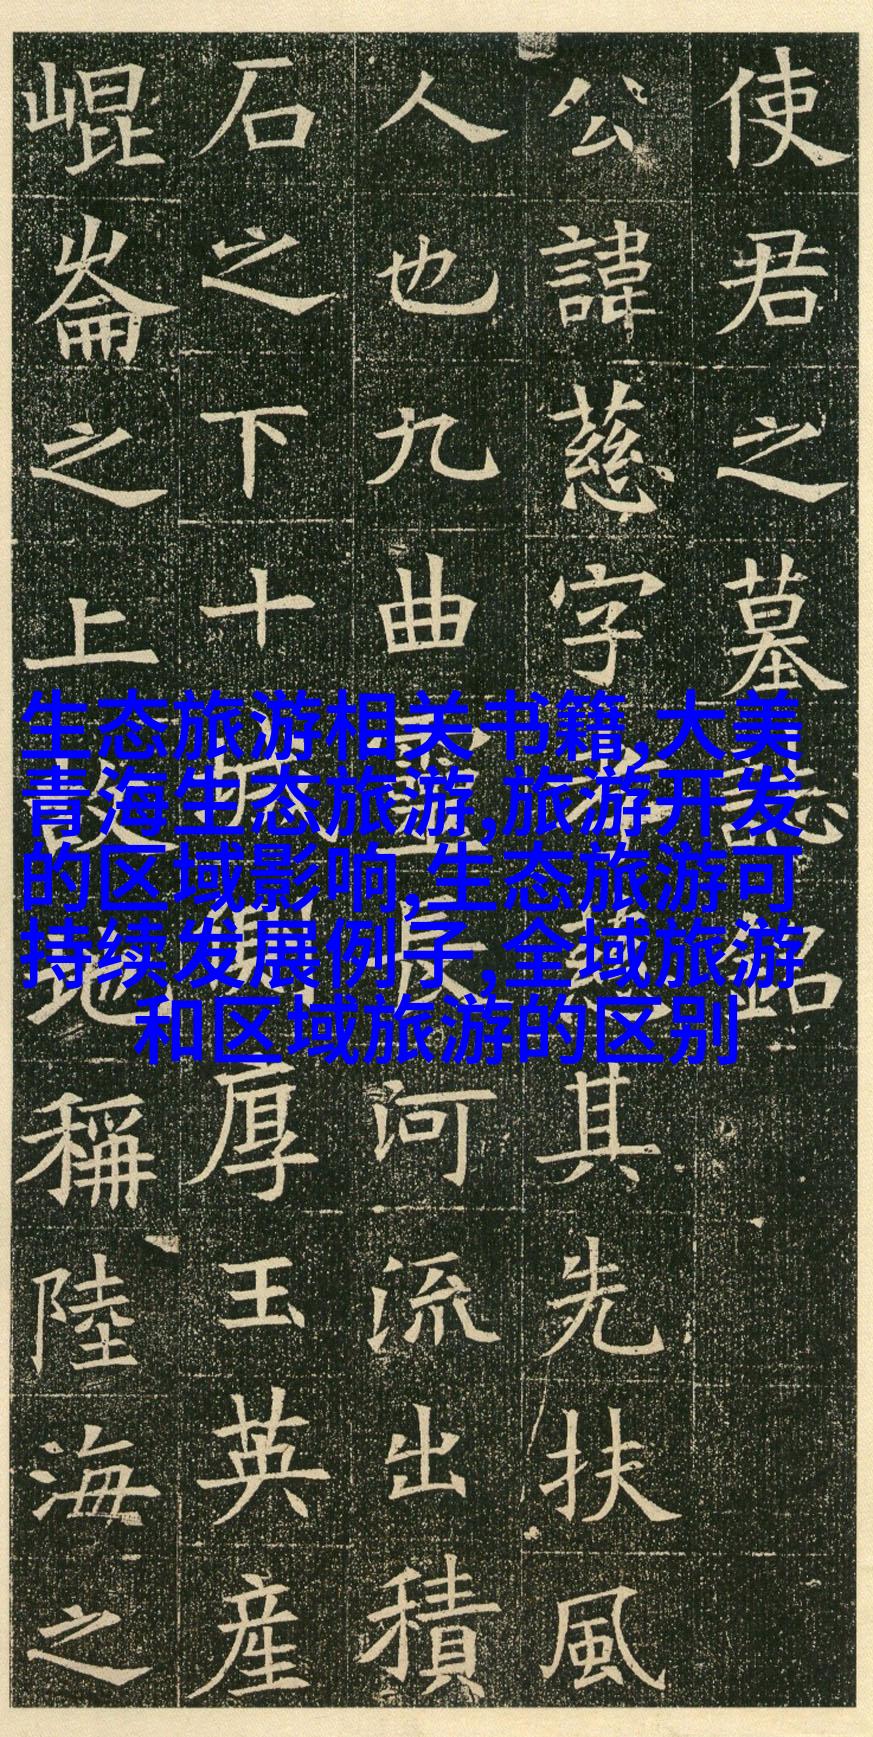 使君之墓誌銘
公諱慈字孝慈其先扶風
人也九曲靈長河流出積
石之下十厚玉英產
崐崙之上故地稱陸海之
生态旅游相关书籍,大美
青海生态旅游,旅游开发
的区域影响,生态旅游可
持续发展例子,全域旅游
和区域旅游的区别